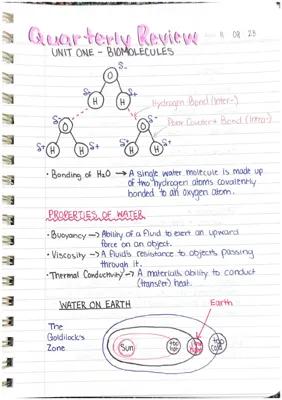 Quarterly Review 11 08 23
UNIT ONE - BIOMOLECULES
δ-
O
H H
δ+ δ+
Hydrogen Bond (Inter-)
δ- δ-
O O
Polar Covalent Bond (Intra-)
δ+ H H δ+ δ+ H H δ+
• Bonding of H2O → A single water molecule is made up
of two hydrogen atoms covalently
bonded to an oxygen atom.
PROPERTIES OF WATER
• Buoyancy → Ability of a fluid to exert an upward
force on an object.
• Viscosity → A fluid's resistance to objects passing
through it.
• Thermal Conductivity → A material's ability to conduct
(transfer) heat.
WATER ON EARTH
Earth
The
Goldilock's
Zone
Sun too hot too cold